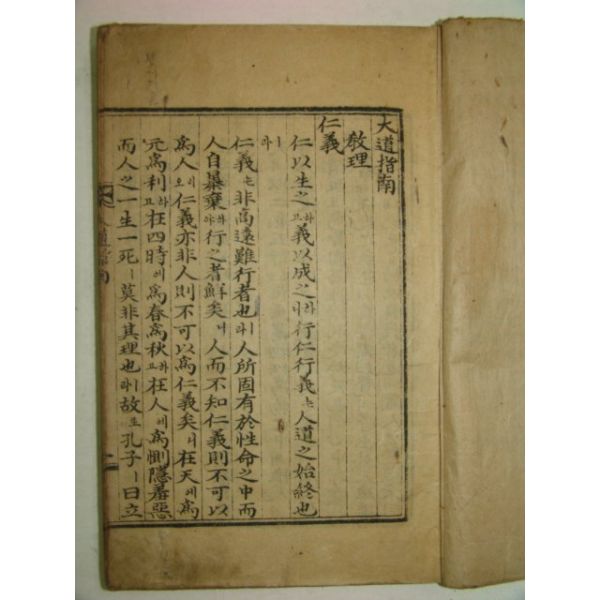 大道指南
敎理
仁義
仁以生之하고義以成之하나니行仁行義는人道之始終也
라
仁義는非高遠難行者也라人所固有於性命之中而
人自暴棄하야行之者鮮矣니人而不知仁義則不可以
爲人이오仁義亦非人則不可以爲仁義矣니在天에爲
元爲利하고在四時에爲春爲秋하고在人에爲惻隱羞惡
而人之一生一死ㅣ莫非其理也라故로孔子ㅣ曰立
大道指南
一